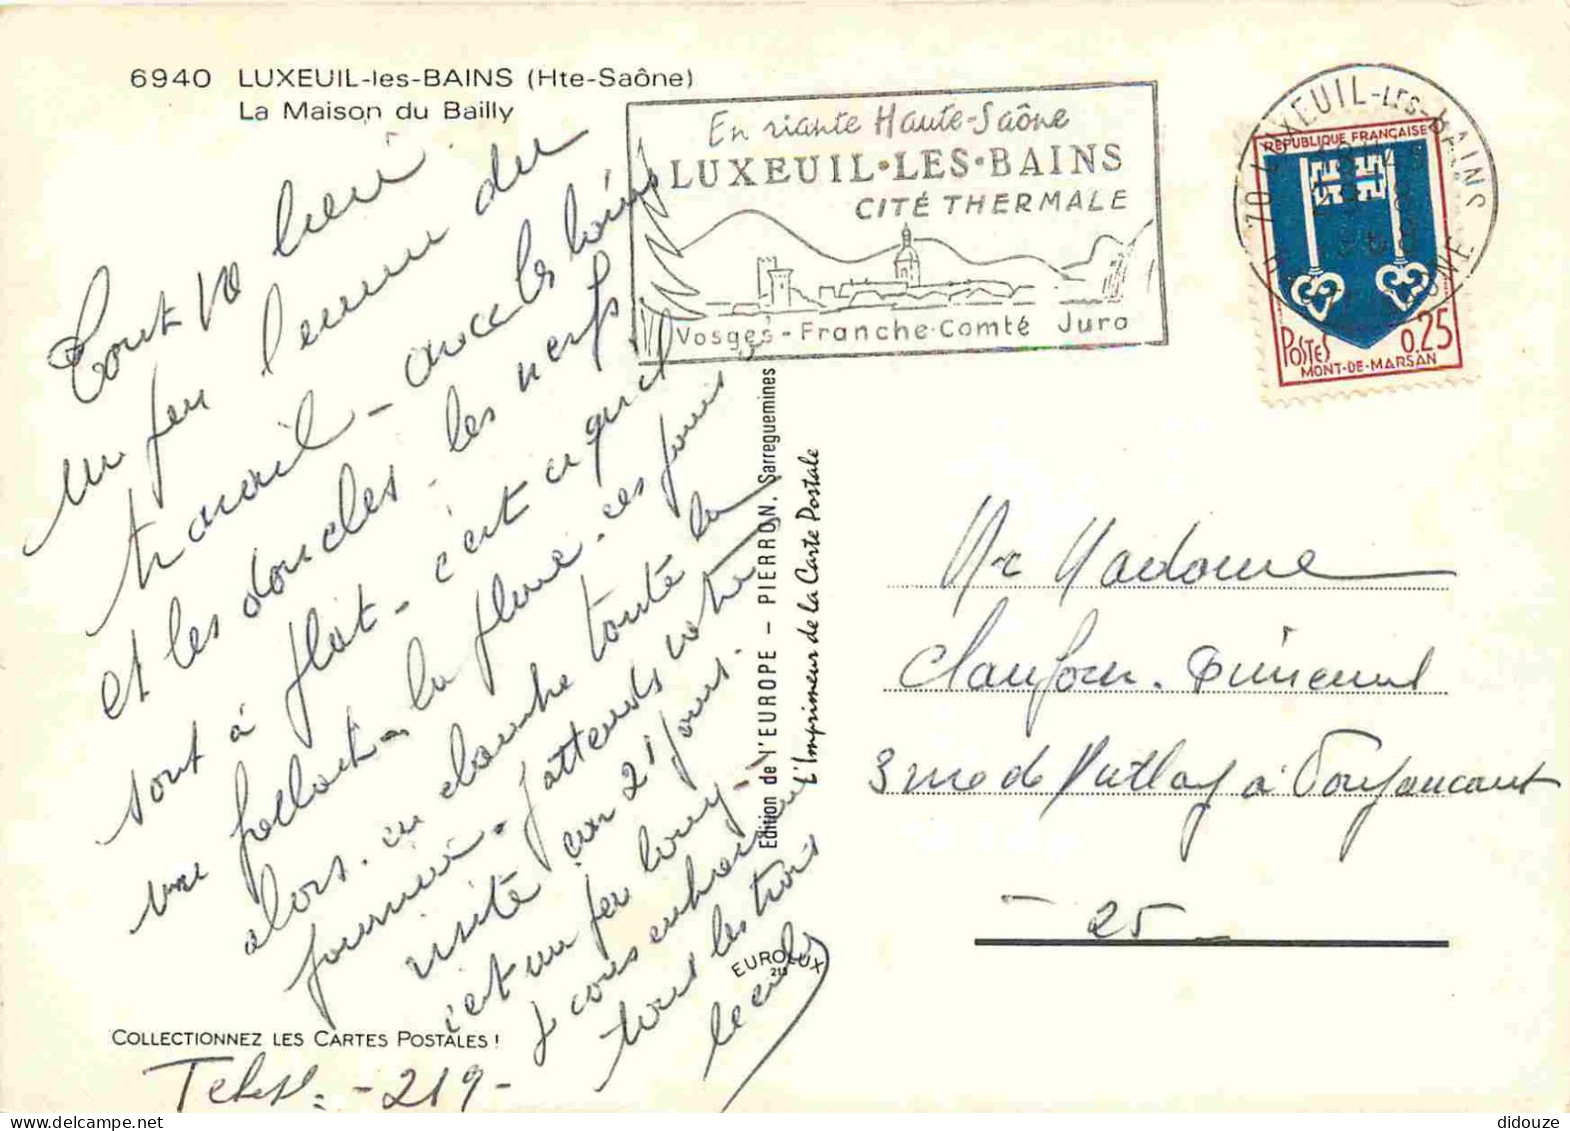 6940 LUXEUIL-les-BAINS (Hte-Saône)
La Maison du Bailly
En riante Haute-Saône
LUXEUIL·LES·BAINS
CITÉ THERMALE
Vosges - Franche-Comté Jura
70 LUXEUIL-LES-BAINS
RÉPUBLIQUE FRANÇAISE
POSTES 0,25
MONT-DE-MARSAN
Tout va bien
un peu
travail - avec les bains
et les douches. les nerfs
sont à plat - c'est ce qu'il
me fallait - la pluie. ces jours
alors. en chambre toute la
journée. J'attends votre
visite car 21 jours.
c'est un peu long -
Je vous embrasse
tous les trois
Teleph: - 219 -
Edition de l'EUROPE - PIERRON. Sarreguemines
L'Imprimeur de la Carte Postale
EUROLUX
COLLECTIONNEZ LES CARTES POSTALES !
Mr Madame
3 rue de à
- 25 -
didouze